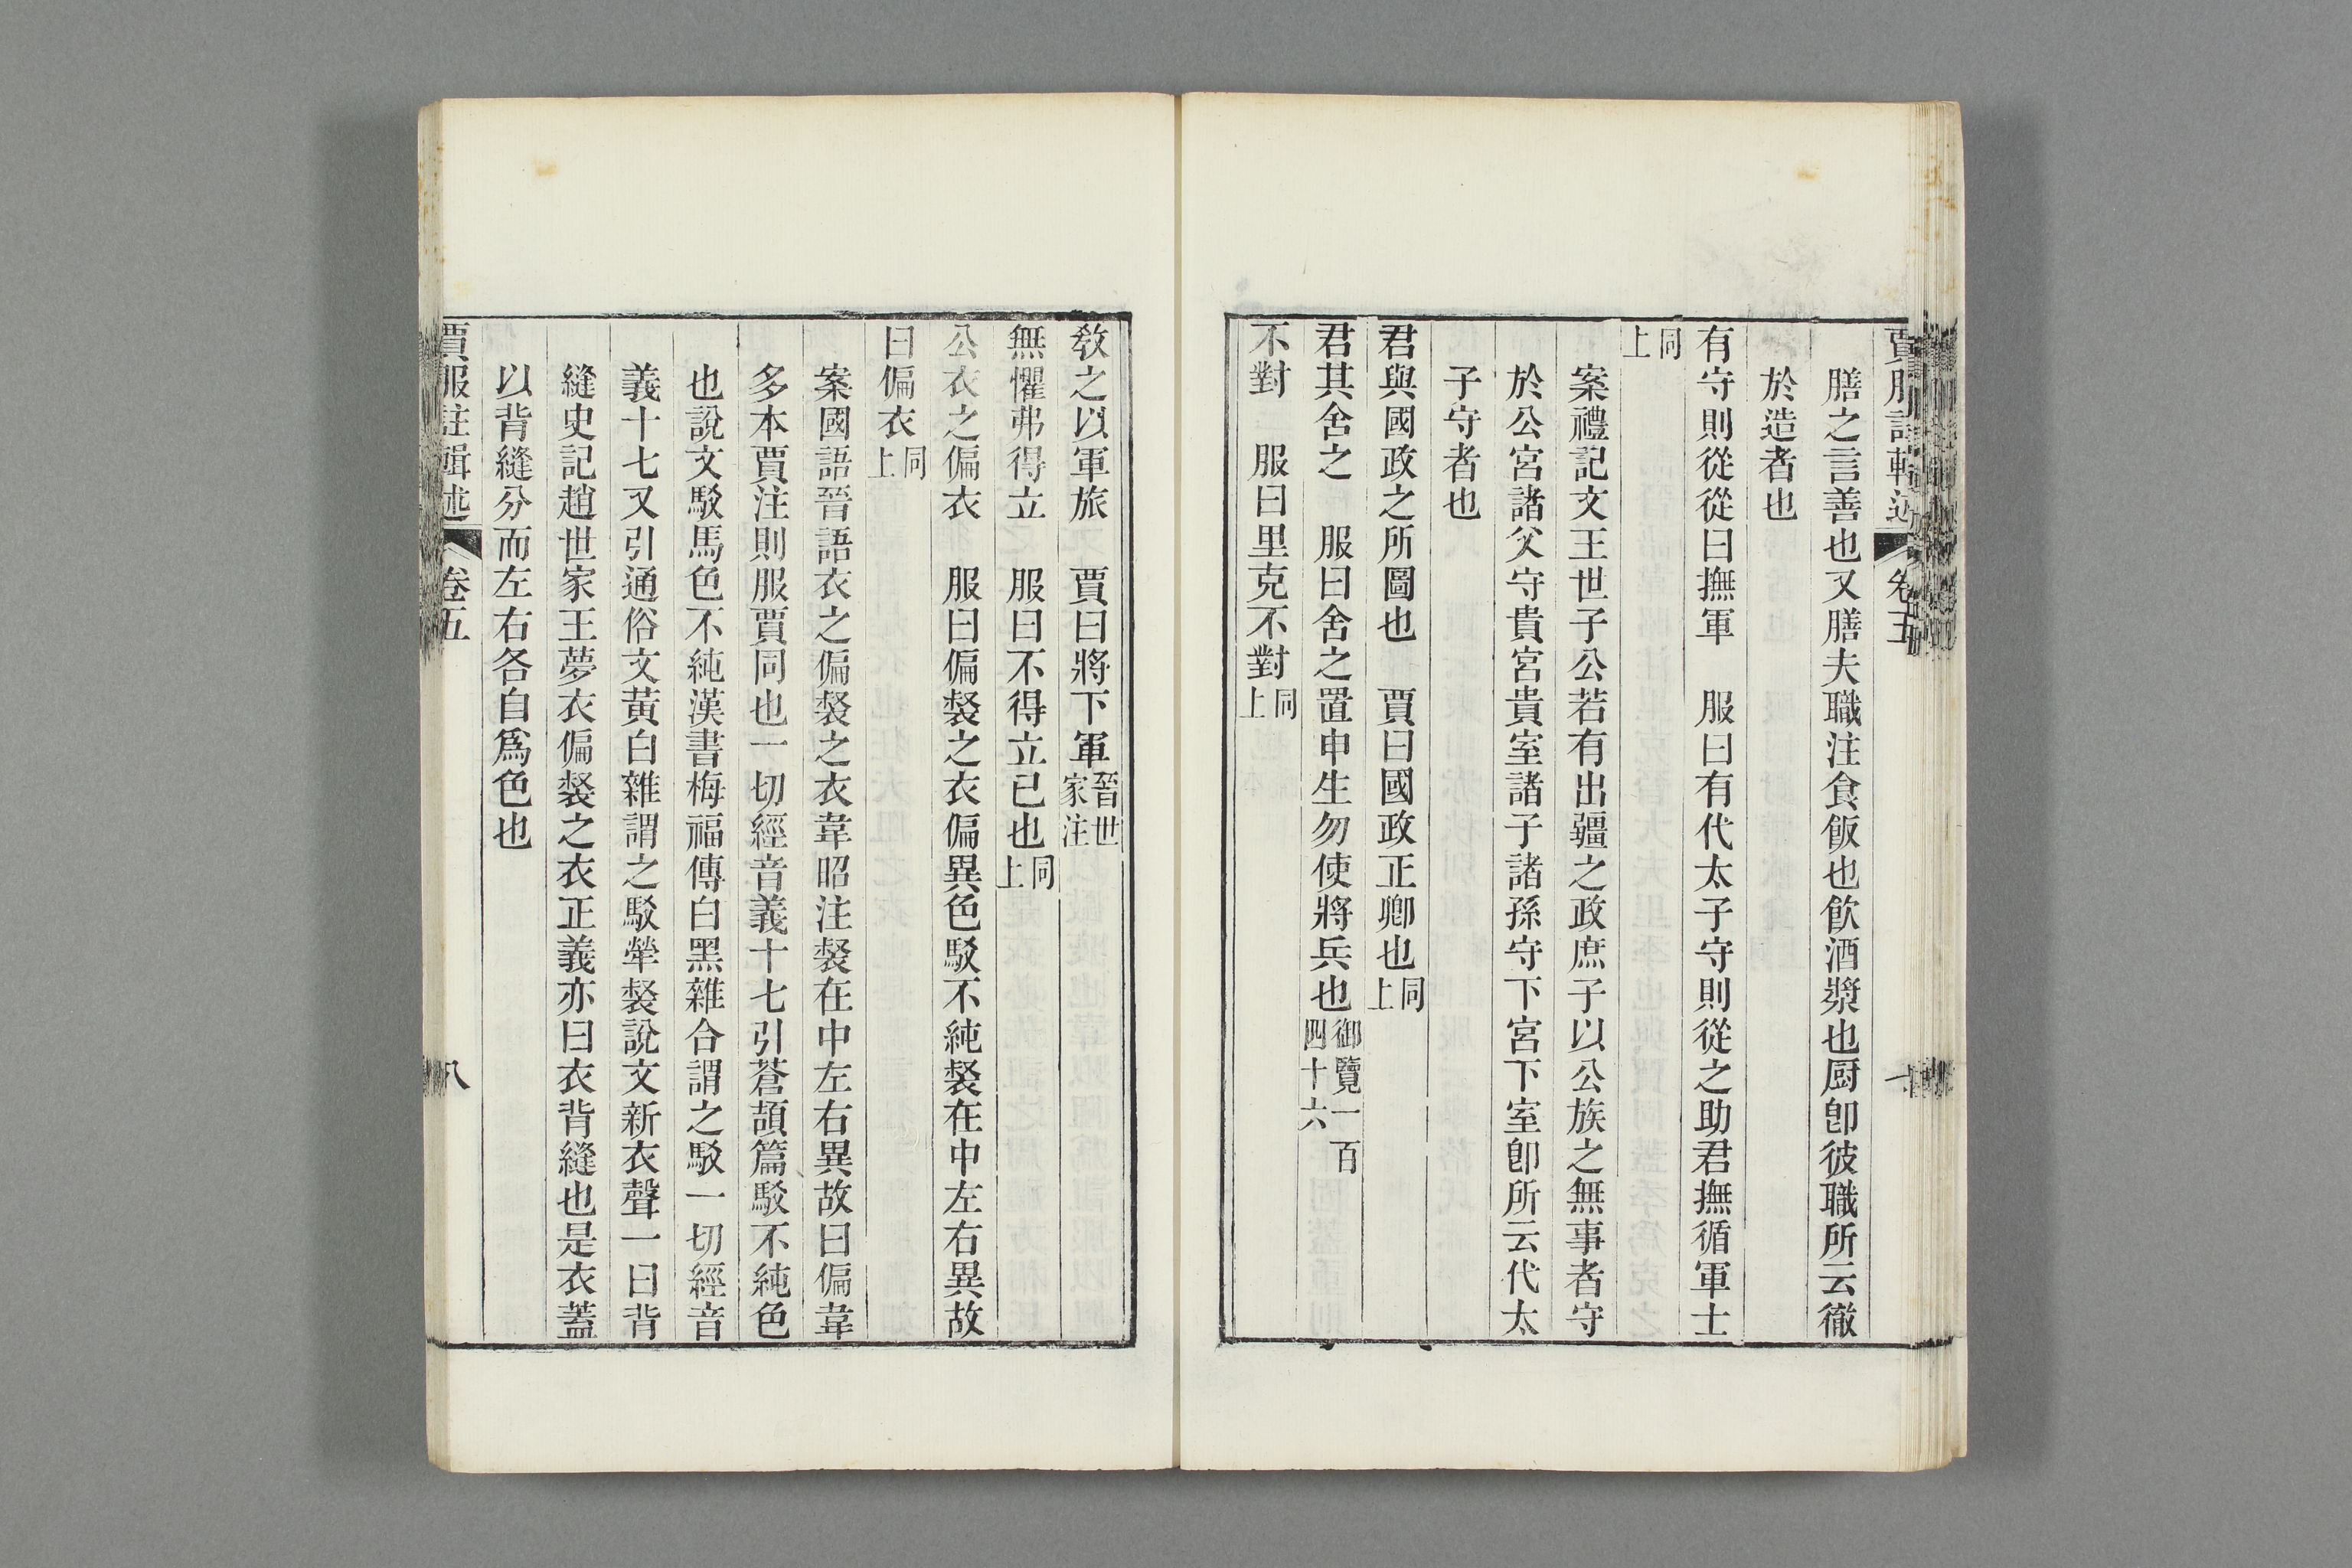 賈服註輯述 卷五
膳之言善也又膳夫職注食飯也飮酒漿也厨卽彼職所云徹
於造者也
有守則從從曰撫軍 服曰有代太子守則從之助君撫循軍士
同上
案禮記文王世子公若有出疆之政庶子以公族之無事者守
於公宮諸父守貴宮貴室諸子諸孫守下宮下室卽所云代太
子守者也
君與國政之所圖也 賈曰國政正卿也同上
君其舍之 服曰舍之置申生勿使將兵也御覽一百四十六
不對 服曰里克不對同上
敎之以軍旅 賈曰將下軍晉世家注
無懼弗得立 服曰不得立已也同上
公衣之偏衣 服曰偏裻之衣偏異色駁不純裻在中左右異故
曰偏衣同上
案國語晉語衣之偏裻之衣韋昭注裻在中左右異故曰偏韋
多本賈注則服賈同也一切經音義十七引蒼頡篇駁不純色
也說文駁馬色不純漢書梅福傳白黑雜合謂之駁一切經音
義十七又引通俗文黃白雜謂之駁犖裻說文新衣聲一曰背
縫史記趙世家王夢衣偏裻之衣正義亦曰衣背縫也是衣蓋
以背縫分而左右各自爲色也
賈服註輯述 卷五 八